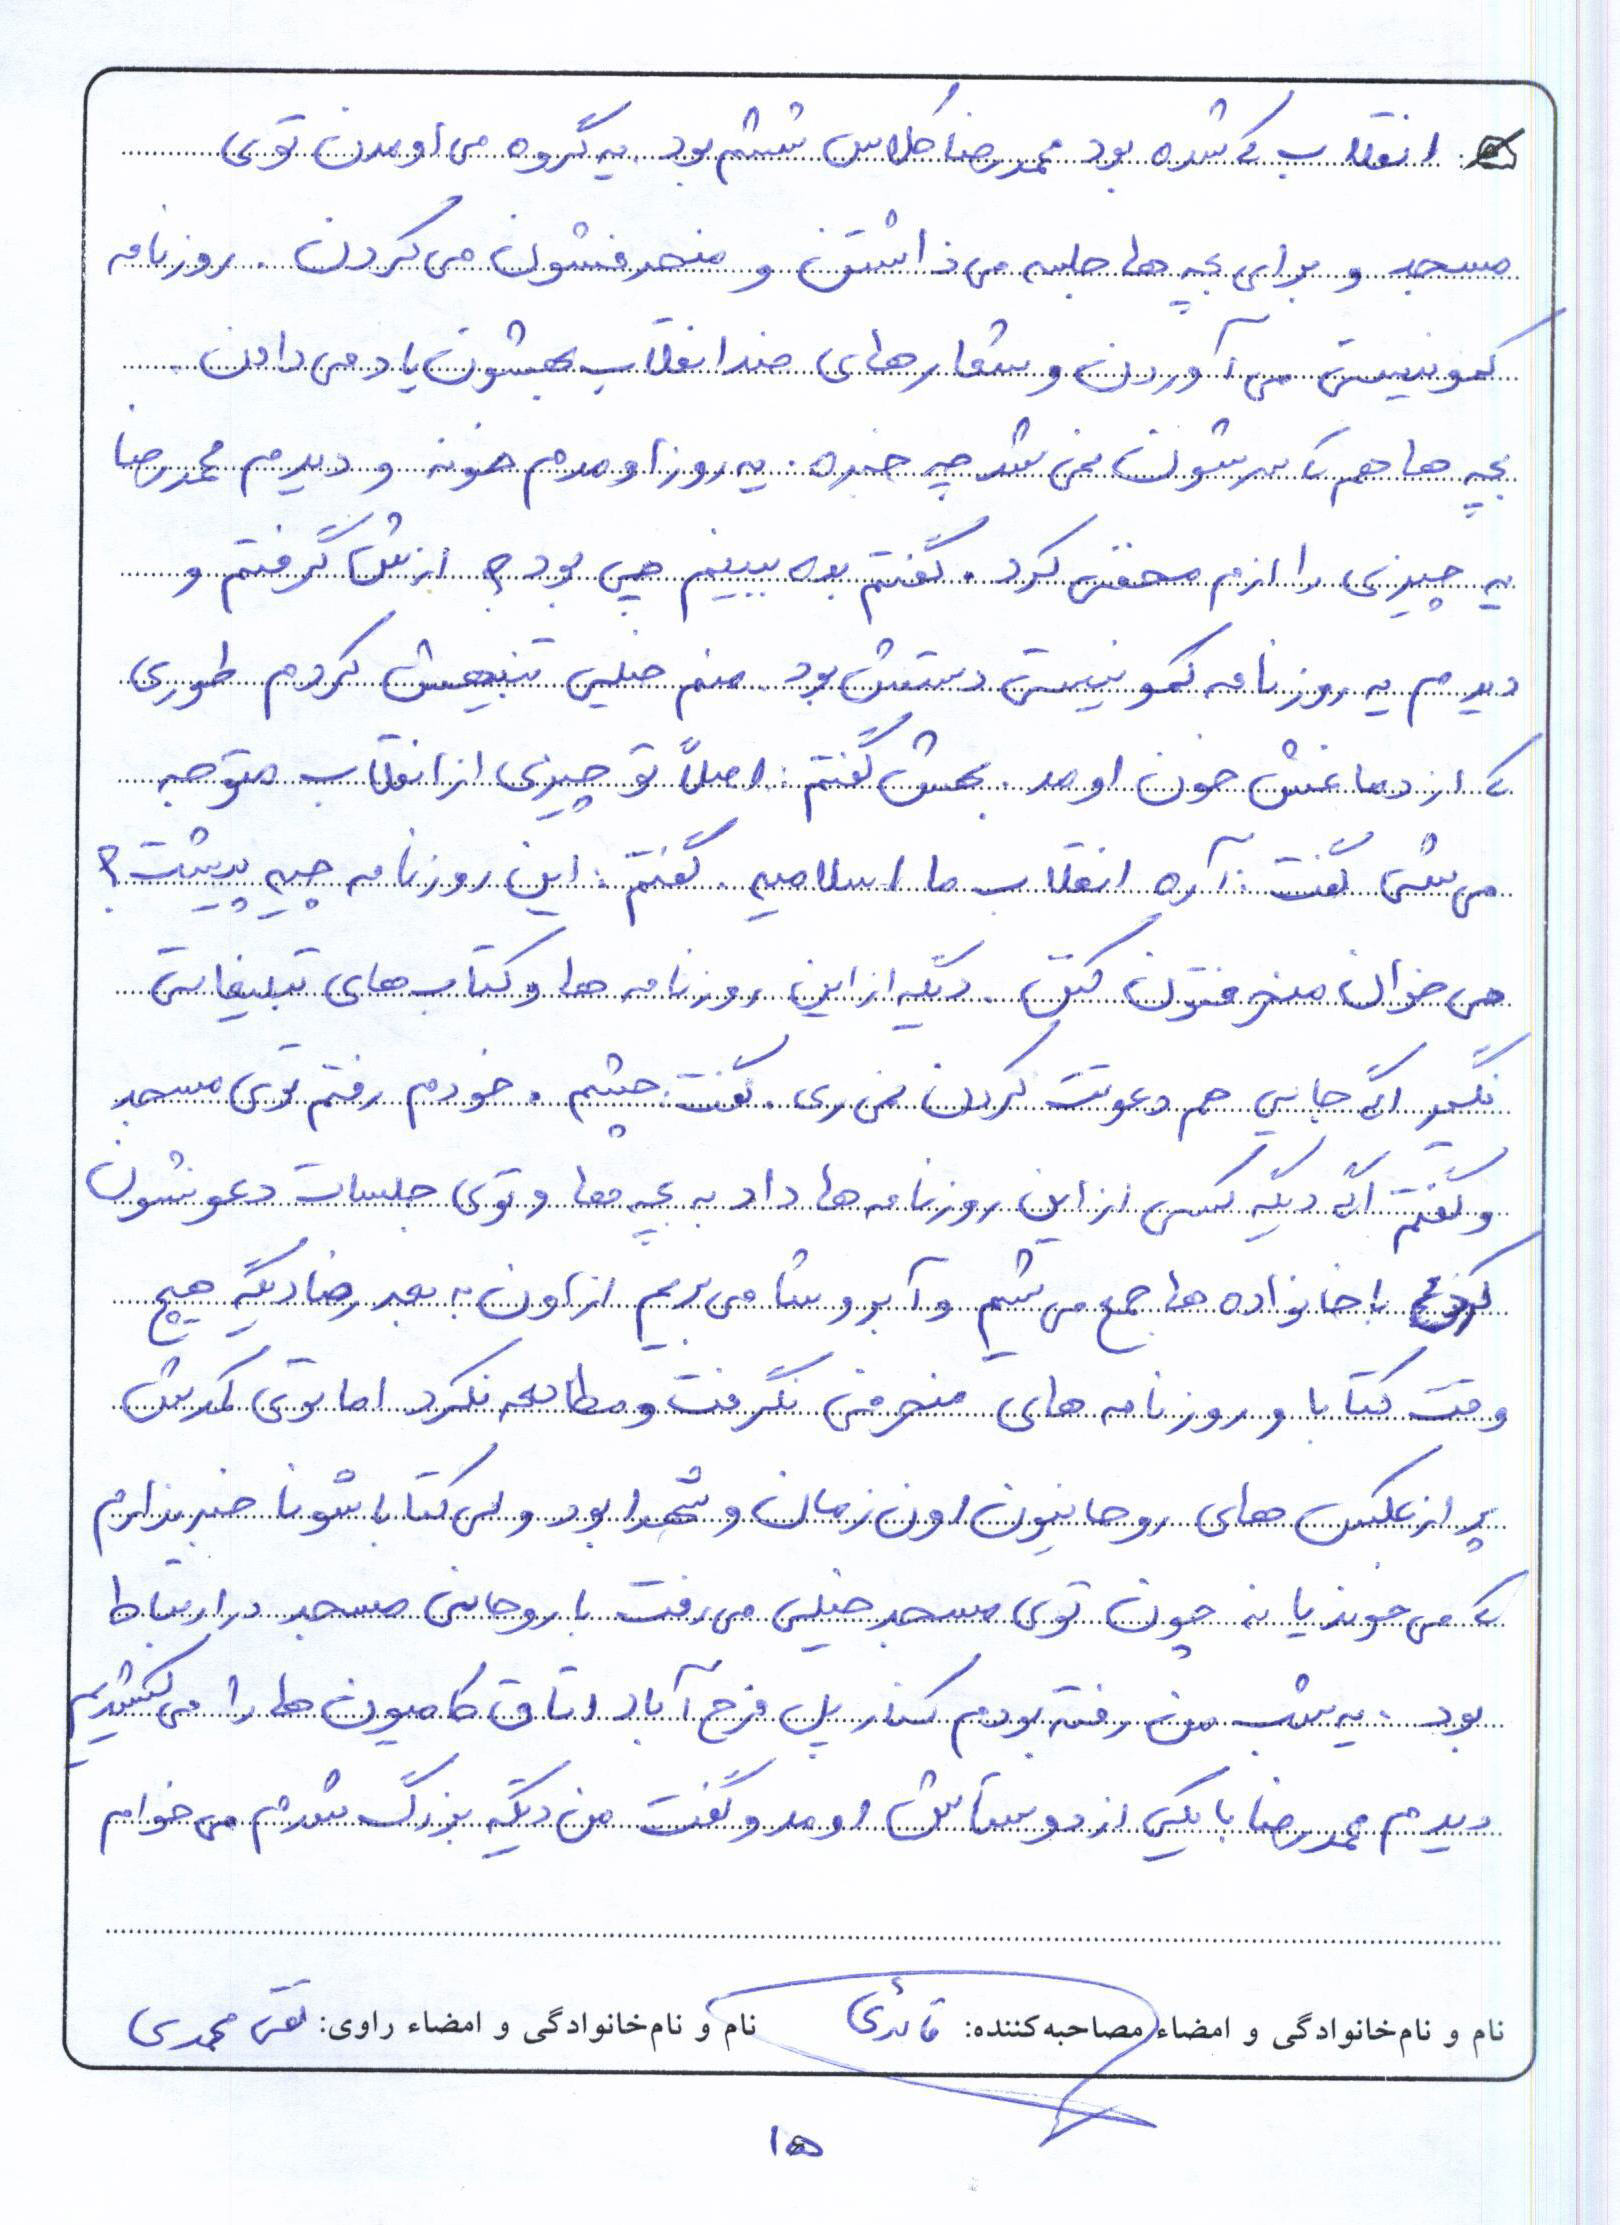 انقلاب که شده بود محمدرضا کلاس ششم بود. یه گروه می اومدن توی
مسجد و برای بچه ها جلسه می ذاشتن و منحرفشون می کردن. روزنامه
کمونیستی می آوردن و شعارهای ضد انقلاب بهشون یاد می دادن.
بچه ها هم که سرشون نمی شد چه خبره. یه روز اومدم خونه و دیدم محمدرضا
یه چیزی را ازم مخفی کرد. گفتم بده ببینم چی بود؟ ازش گرفتم و
دیدم یه روزنامه کمونیستی دستش بود. منم خیلی تنبیهش کردم طوری
که از دماغش خون اومد. بهش گفتم: اصلاً تو چیزی از انقلاب متوجه
می شی گفت: آره انقلاب ما اسلامیه. گفتم: این روزنامه چیه پیشت؟
می خوان منحرفتون کنن. دیگه از این روزنامه ها و کتاب های تبلیغاتی
نگیر اگه جایی هم دعوتت کردن نمی ری. گفت: چشم. خودم رفتم توی مسجد
و گفتم اگه دیگه کسی از این روزنامه ها داد به بچه ها و توی جلسات دعوتشون
کرد با خانواده ها جمع می شیم و آبروشا می بریم از اون به بعد رضا دیگه هیچ
وقت کتابا و روزنامه های منحرفی نگرفت و مطالعه نکرد اما توی کمدش
پر از عکس های روحانیون اون زمان و شهدا بود ولی کتاباشونا خبر ندارم
که می خوند یا نه چون توی مسجد خیلی می رفت با روحانی مسجد در ارتباط
بود. یه شب من رفته بودم کنار پل فرح آباد اتاق کامیون ها را می کشیدیم
دیدم محمدرضا با یکی از دوستاش اومد و گفت من دیگه بزرگ شدم می خوام
نام و نام‌خانوادگی و امضاء مصاحبه‌کننده: قائدی نام و نام‌خانوادگی و امضاء راوی: تقی محمدی
۱۵